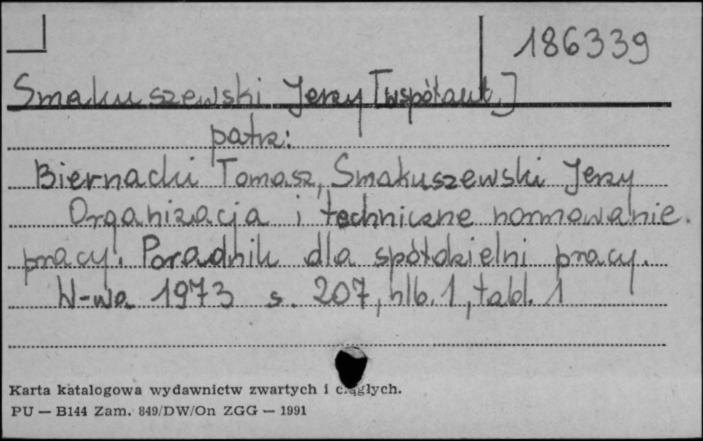 186339
Smakuszewski Jerzy [współaut.]
patrz:
Biernacki Tomasz, Smakuszewski Jerzy
Organizacja i techniczne normowanie
pracy. Poradnik dla spółdzielni pracy.
W-wa 1973 s. 207, nlb. 1, tabl. 1
Karta katalogowa wydawnictw zwartych i ciągłych.
PU — B144 Zam. 849/DW/On ZGG — 1991